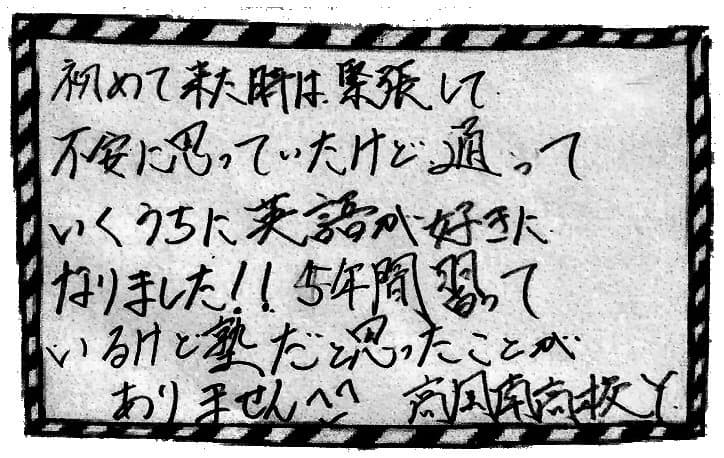 初めて来た時は緊張して
不安に思っていたけど通って
いくうちに英語が好きに
なりました!! 5年間習って
いるけど塾だと思ったことが
ありません^^ 高岡南高校 Y.